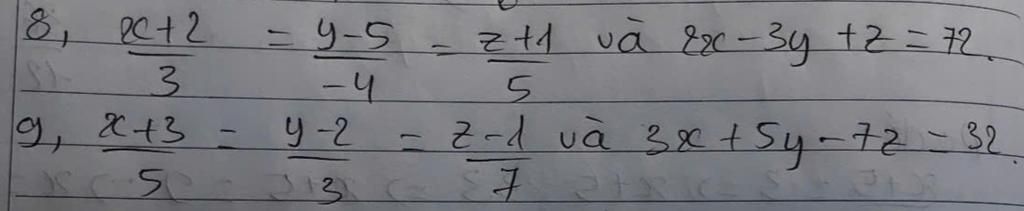 8, x+2/3 = y-5/-4 = z+1/5 và 2x-3y+z=72.
9, x+3/5 = y-2/3 = z-1/7 và 3x+5y-7z=32.